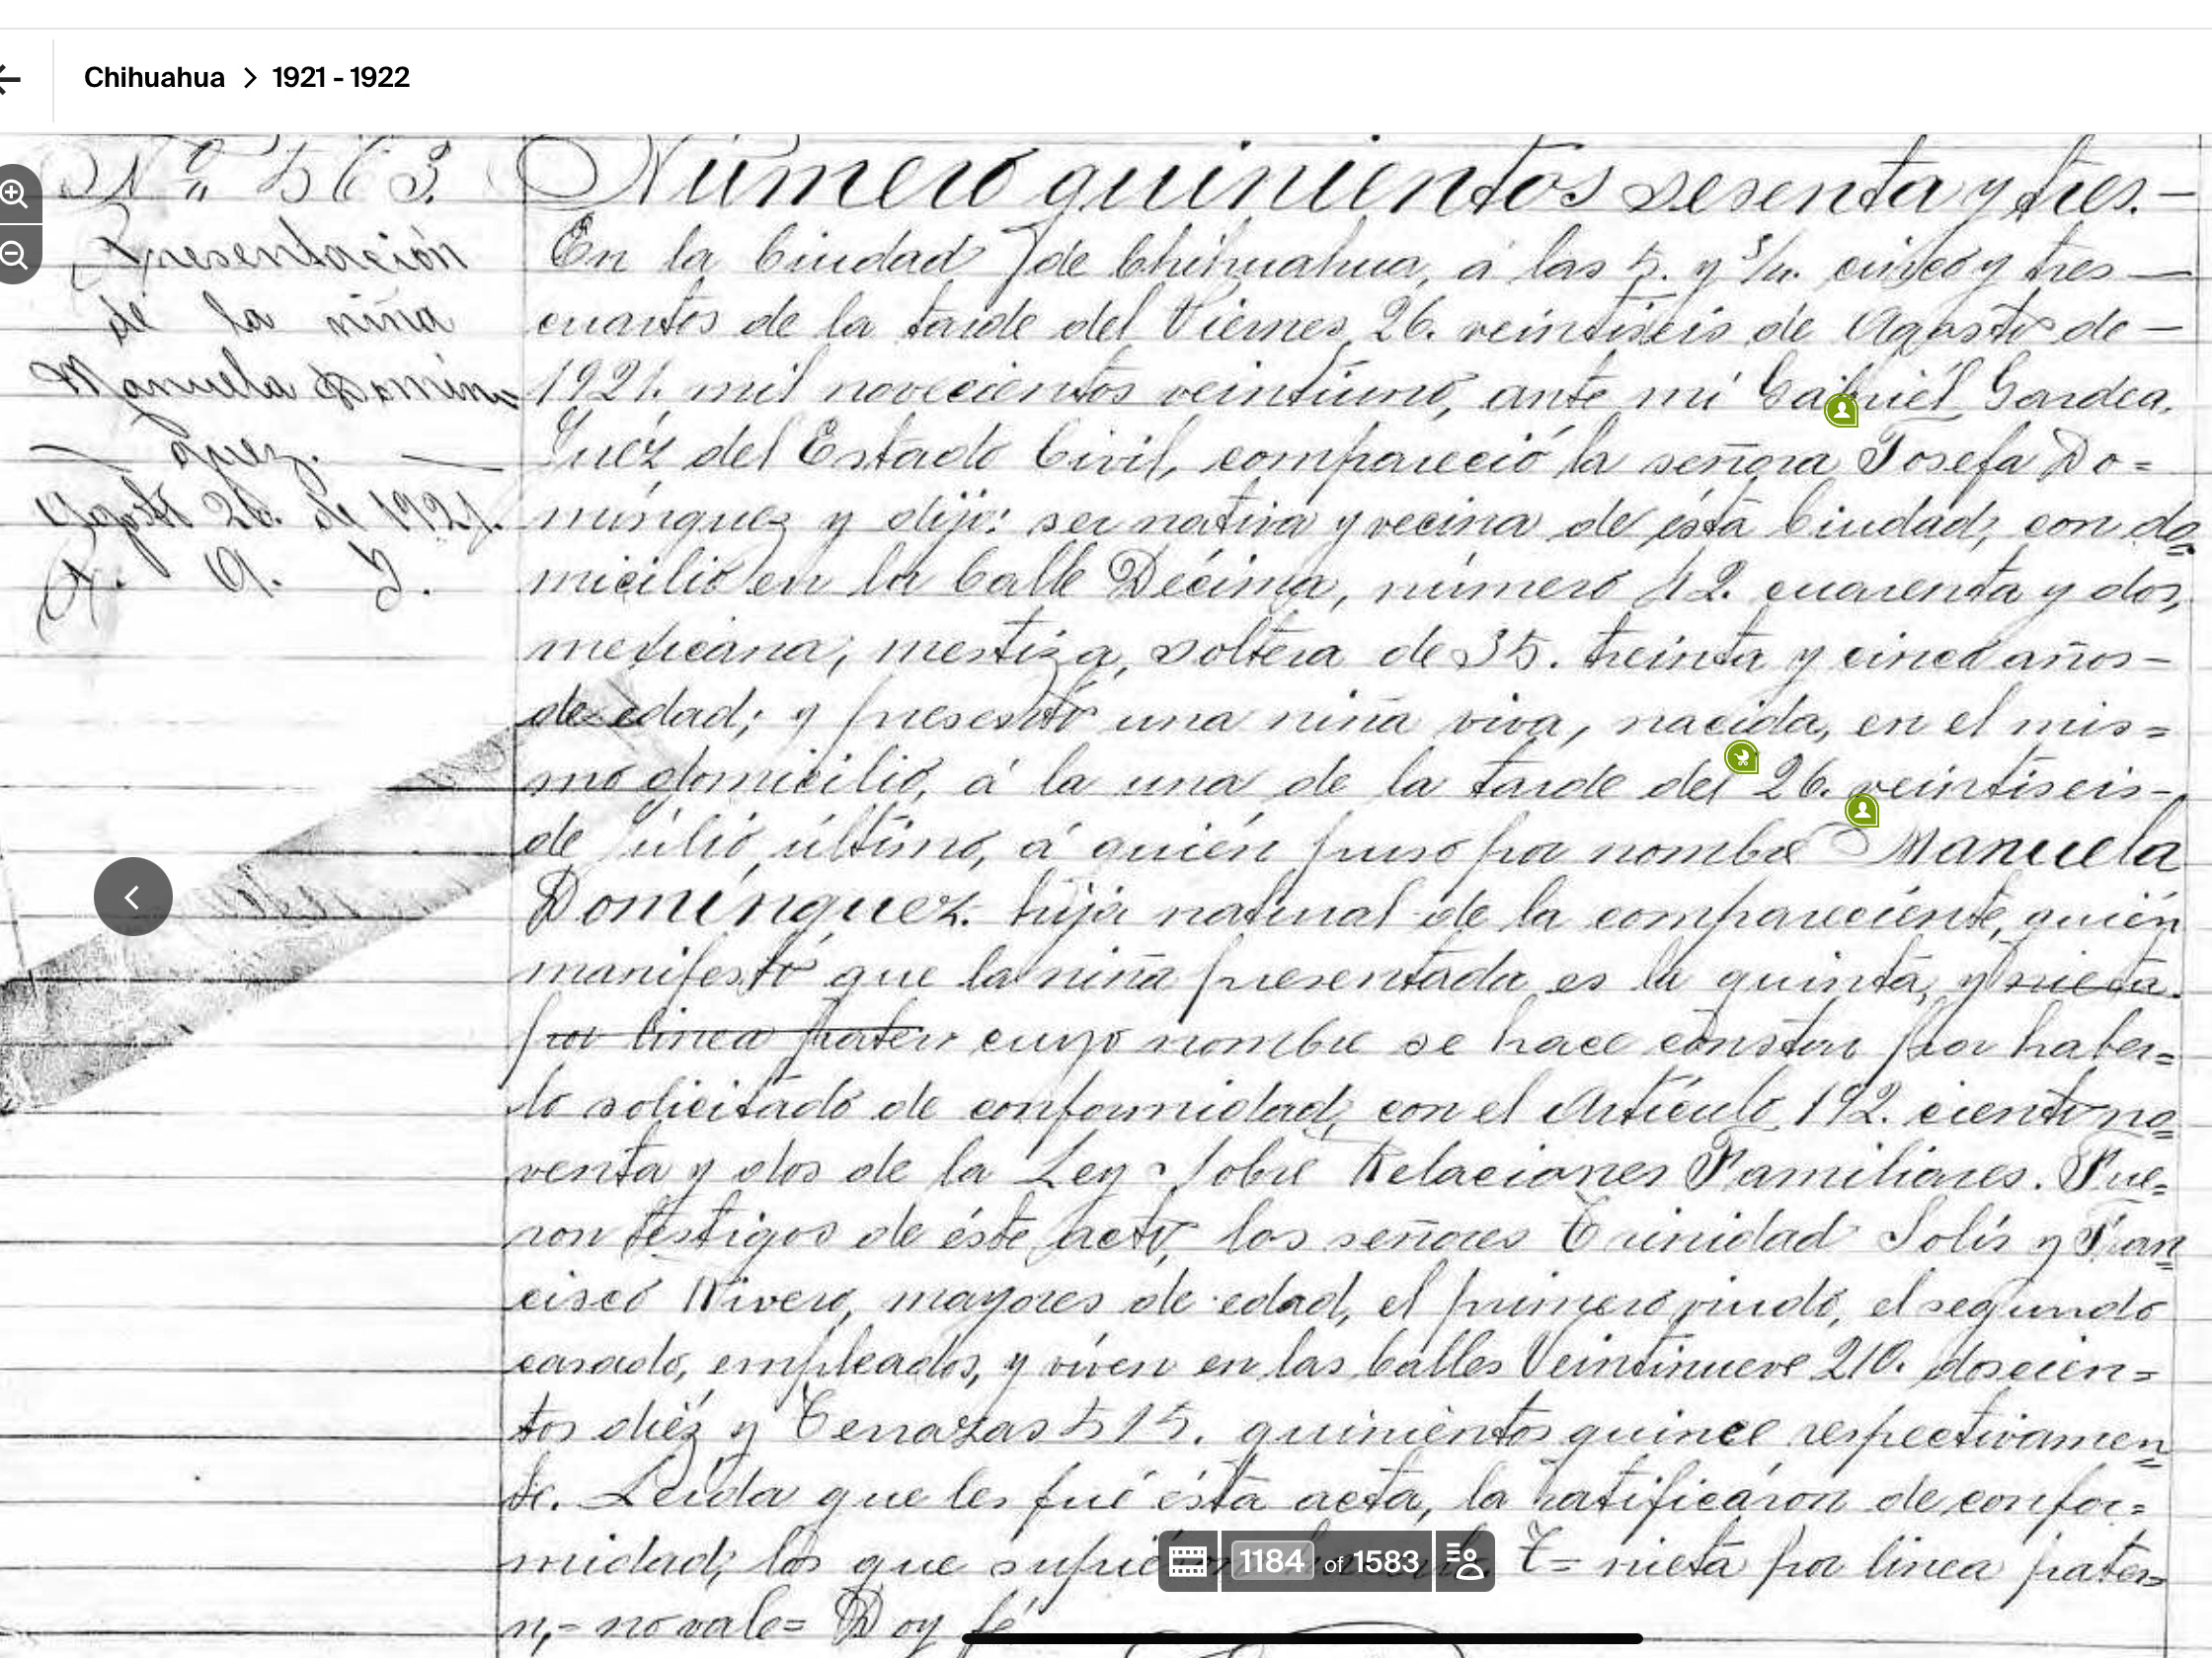 Chihuahua > 1921 - 1922
Nº 563.
Presentación
de la niña
Manuela Domín
guez.
Agosto 26. de 1921.
Número quinientos sesenta y tres.—
En la Ciudad de Chihuahua, á las 5. y 3/4. cinco y tres —
cuartos de la tarde del Viernes 26. veintiseis de Agosto de —
1921. mil novecientos veintiuno, ante mí Gabriél Gardea,
Juéz del Estado Civil, compareció la señora Josefa Do=
mínguez y dijo: ser nativa y vecina de ésta Ciudad, con do
micilio en la Calle Décima, número 42. cuarenta y dos,
mexicana, mestiza, soltera de 35. treinta y cinco años —
de edad; y presentó una niña viva, nacida, en el mis=
mo domicilio, á la una de la tarde del 26. veintiseis —
de Júlio último, á quién puso por nombre Manuela
Domínguez. hija natural de la compareciente, quién
manifestó que la niña presentada es la quinta, y nieta
por linea pater cuyo nombre se hace constar por haber=
lo solicitado de conformidad, con el Artículo 192. ciento no
venta y dos de la Ley Sobre Relaciones Familiares. Fue=
ron testigos de éste acto, los señores Trinidad Solís y Fran
cisco Rivero, mayores de edad, el primero viudo, el segundo
casado, empleados, y viven en las Calles Veintinueve 210. doscien=
tos diéz y Terrazas 515. quinientos quince respectivamen
te. Leída que les fué ésta acta, la ratificáron de confor=
midad, los que supiéron T= nieta por linea pater=
n,- no vale= Doy fé
1184 of 1583